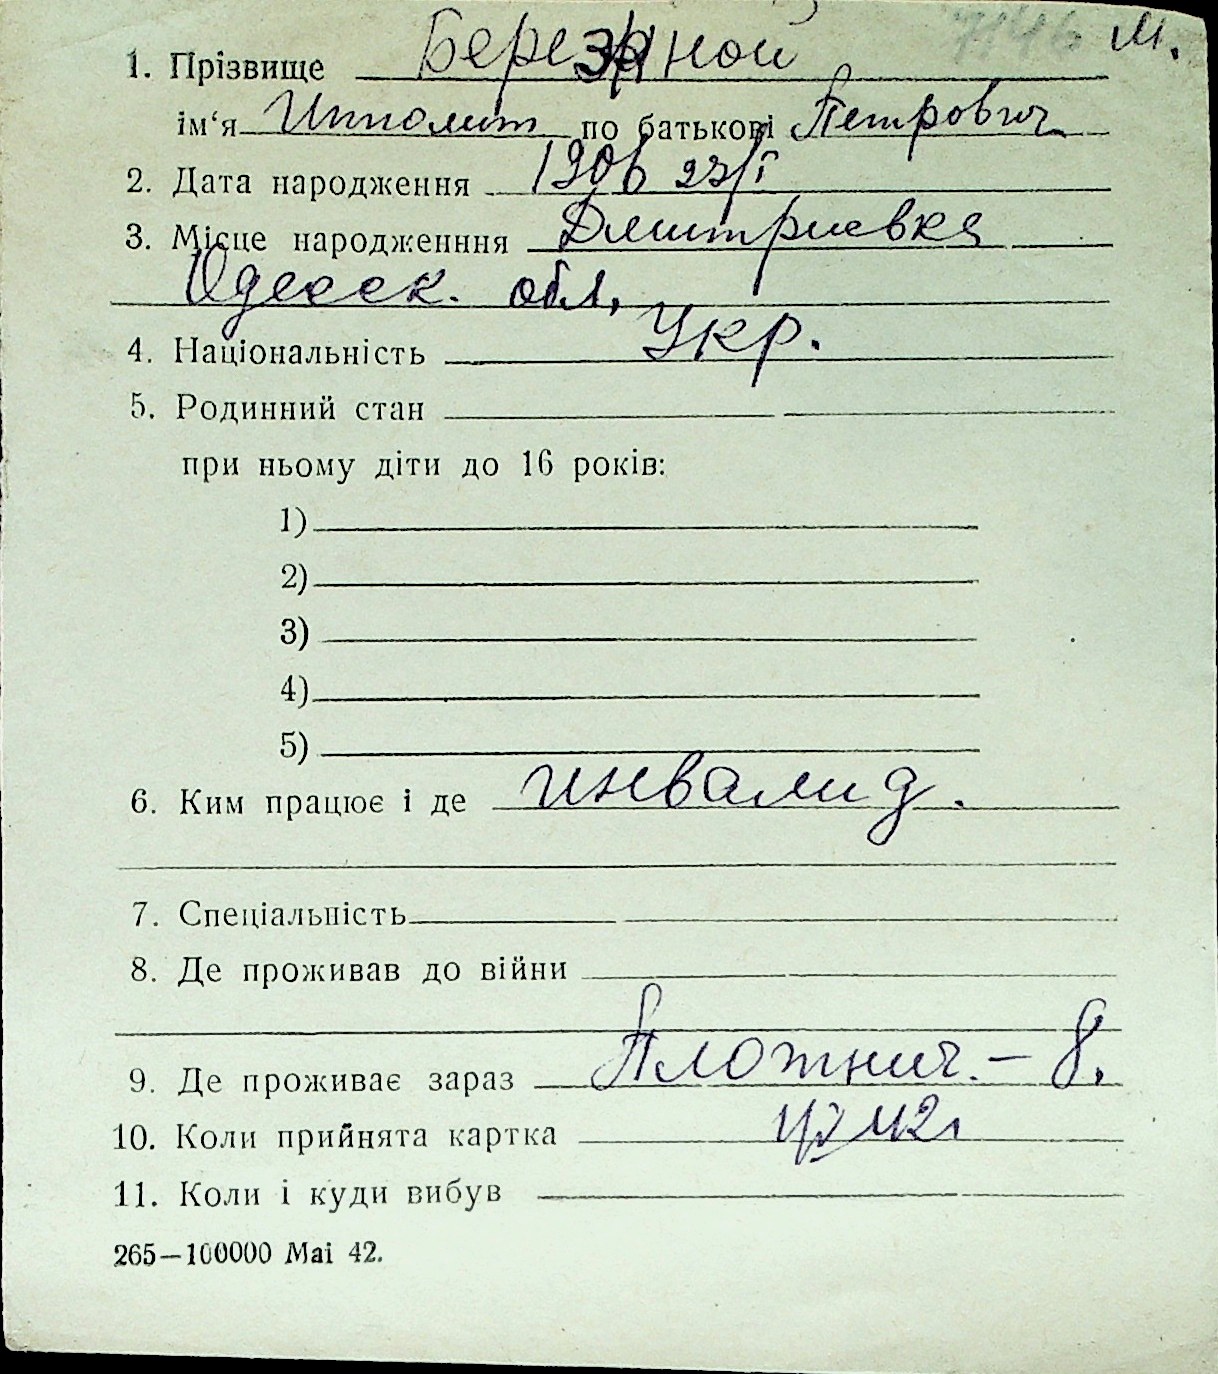 7146 м.
1. Прізвище Березаной
ім‘я Ипполит по батькові Петрович
2. Дата народження 1906 27/I
3. Місце народженння Дмитриевка
Одесск. обл,
4. Національність Укр.
5. Родинний стан
при ньому діти до 16 років:
1)
2)
3)
4)
5)
6. Ким працює і де инвалид.
7. Спеціальність
8. Де проживав до війни
9. Де проживає зараз Плотнич. – 8,
10. Коли прийнята картка
11. Коли і куди вибув
265—100000 Mai 42.